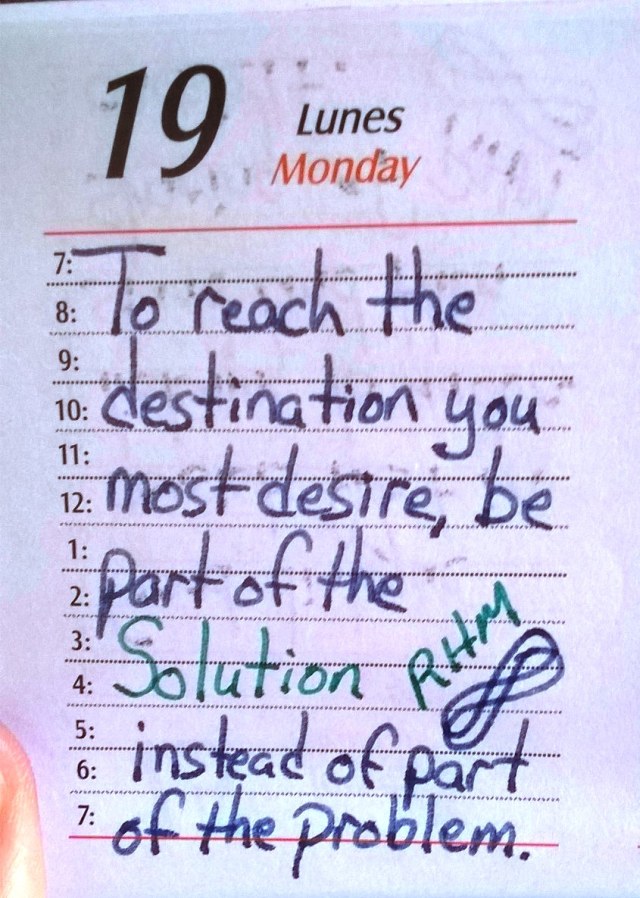 19
Lunes
Monday
7:
To reach the
8:
9:
destination you
10:
11:
most desire, be
12:
1:
part of the
2:
3:
Solution RHM
4:
5:
instead of part
6:
7:
of the problem.